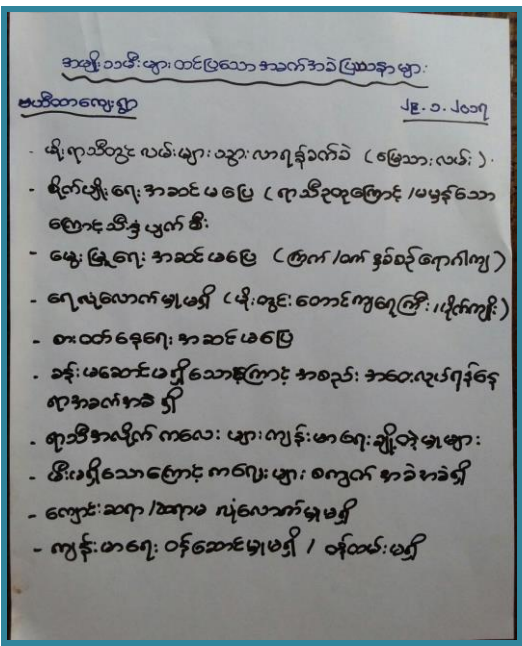 အမျိုးသမီးများတင်ပြသောအခက်အခဲပြဿနာများ
ဗယီထာကျေးရွာ
၂၉.၁.၂၀၁၇
- မိုးရာသီတွင် လမ်းများ သွားလာရန်ခက်ခဲ (မြေသားလမ်း).
- စိုက်ပျိုးရေး အဆင်မပြေ (ရာသီဥတုကြောင့်/မမှန်သော
ကြောင့်သီးနှံပျက်စီး
- မွေးမြူရေး အဆင်မပြေ (ကြက်/ဝက် နှစ်စဉ်ရောဂါကျ)
- ရေလုံလောက်မှုမရှိ (မိုးတွင်းတောင်ကျရေကြီး/ပိုက်ကျိုး)
- စားဝတ်နေရေးအဆင်မပြေ
- ခန်းမဆောင်မရှိသောကြောင့် အစည်းအဝေးလုပ်ရန်နေ
ရာအခက်အခဲရှိ
- ရာသီအလိုက် ကလေးများကျန်းမာရေးချို့တဲ့မှုများ
- မီးမရှိသောကြောင့် ကလေးများ စာကျက် အခက်အခဲရှိ
- ကျောင်းဆရာ/ဆရာမ လုံလောက်မှုမရှိ
- ကျန်းမာရေး ဝန်ဆောင်မှုမရှိ / ဝန်ထမ်းမရှိ